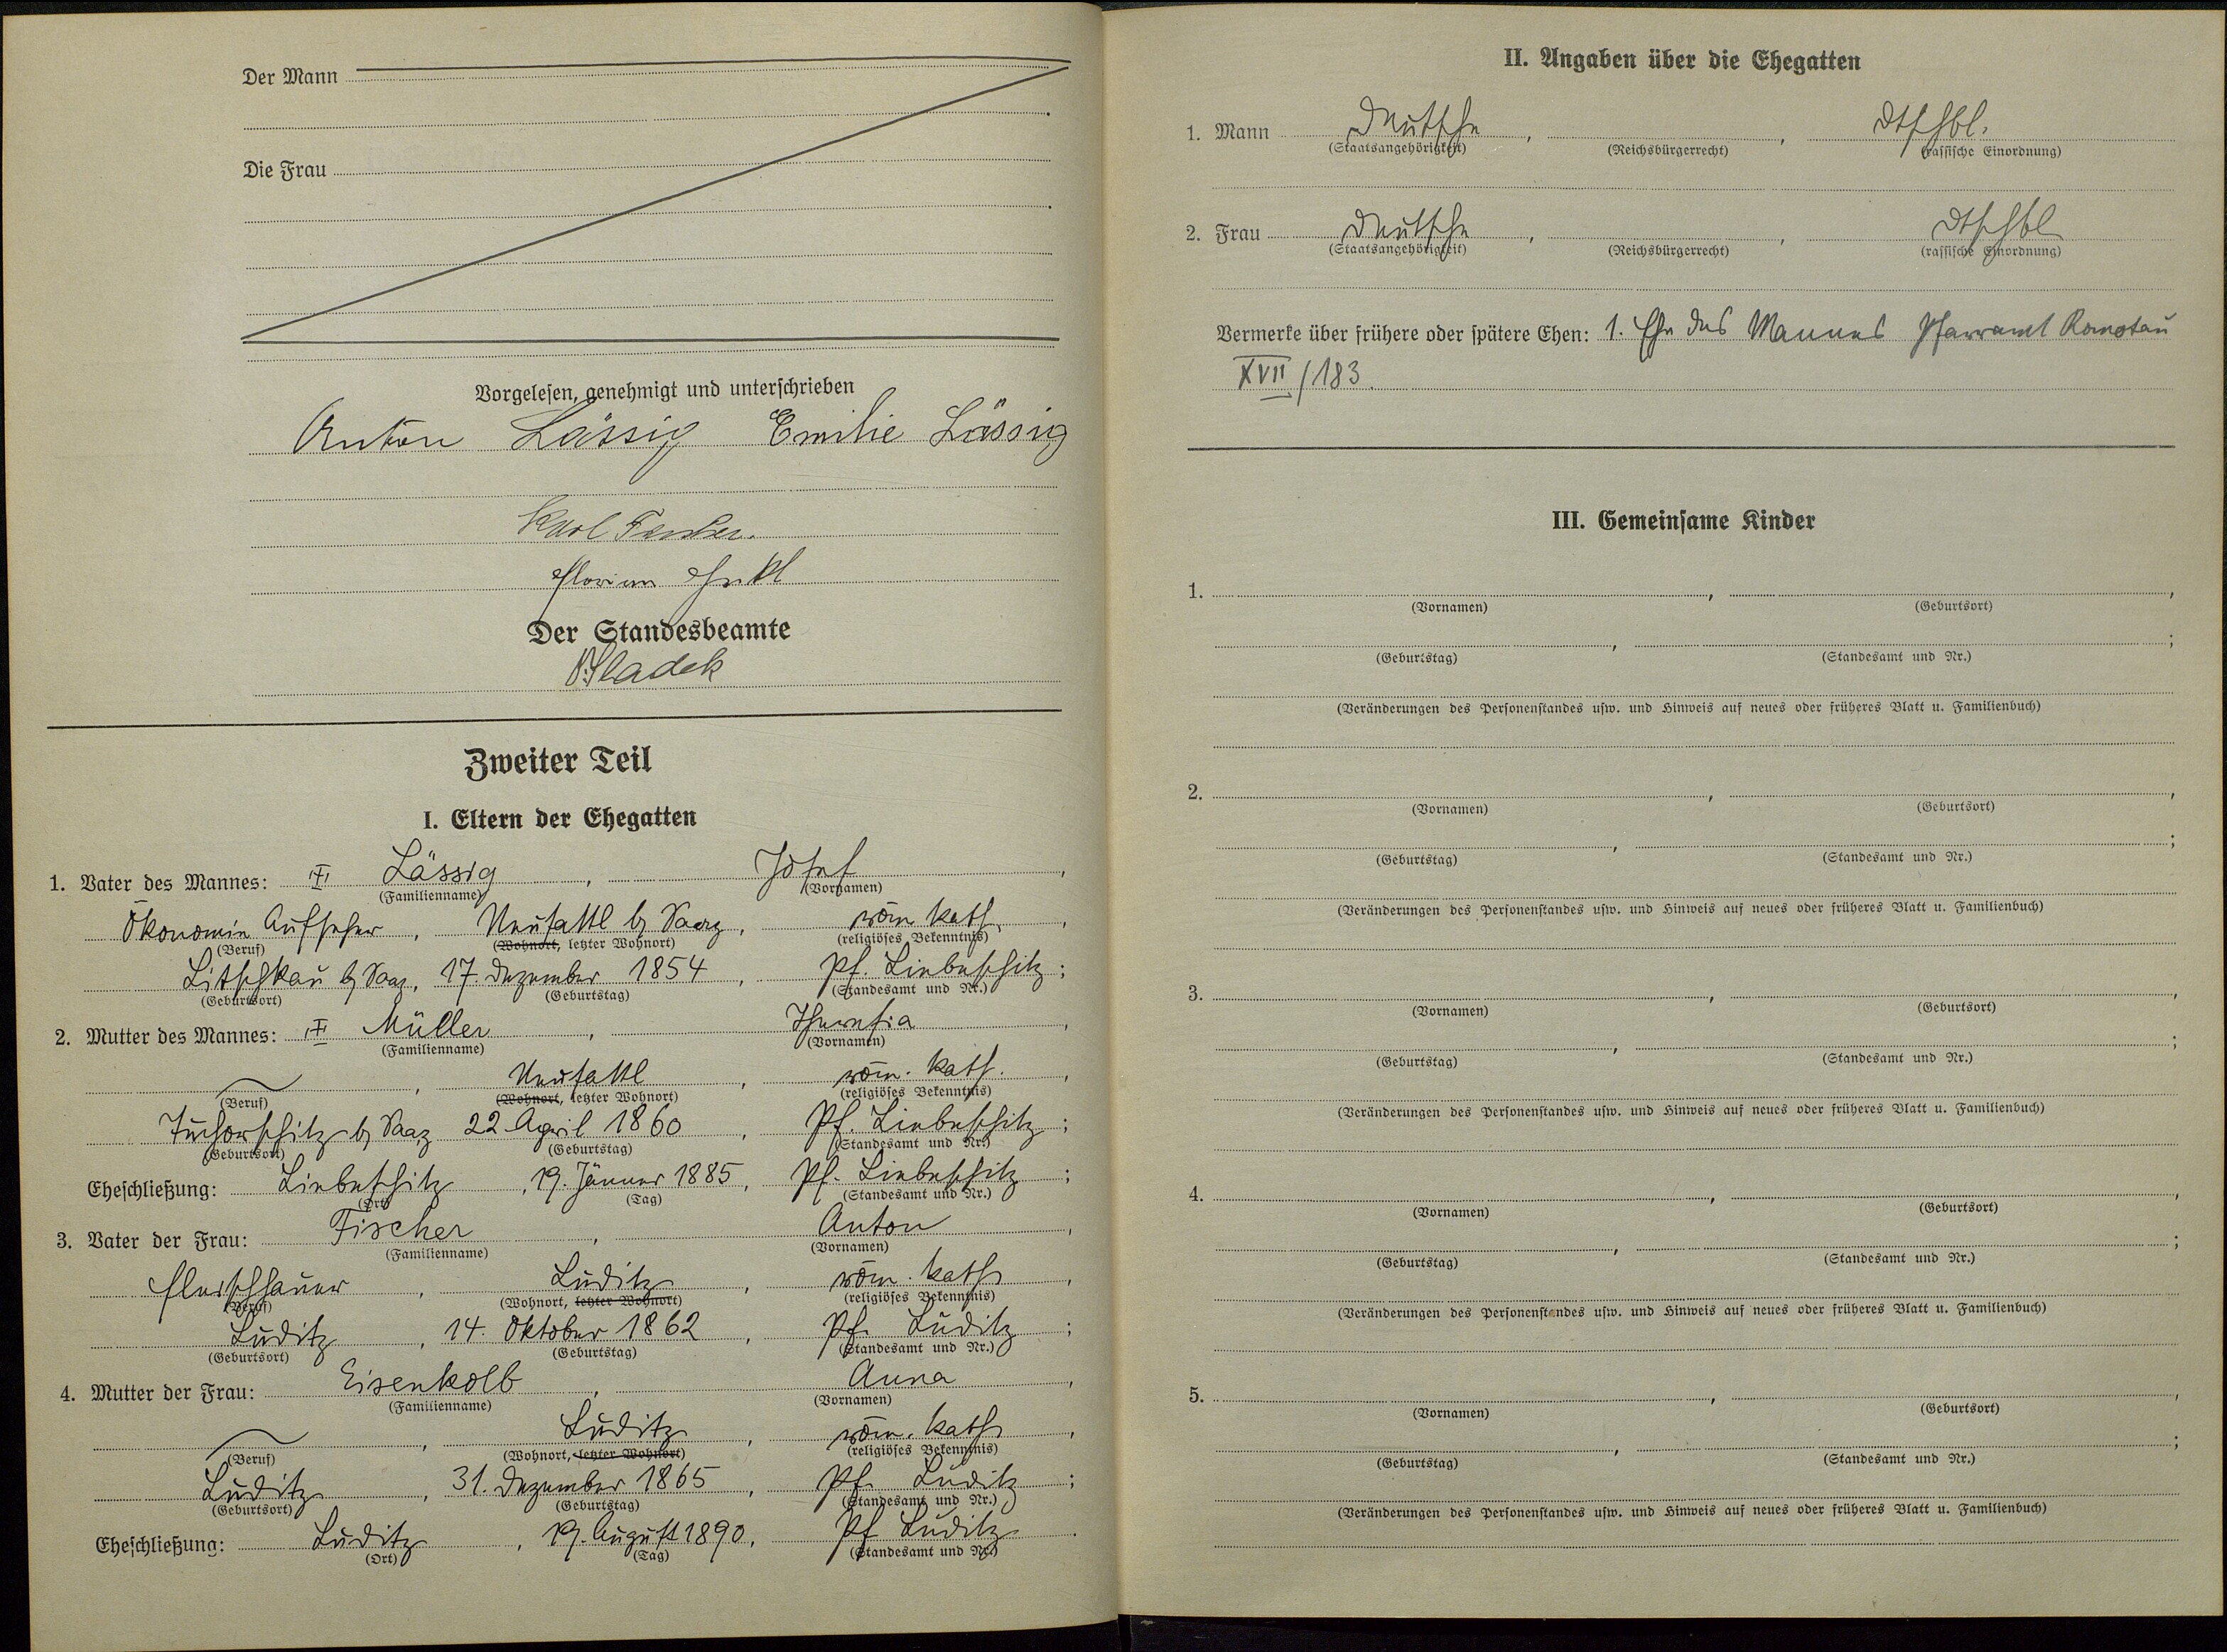 Der Mann
Die Frau
Vorgelesen, genehmigt und unterschrieben
Anton Lässig Emilie Lässig
Karl
Florian
Der Standesbeamte
Sladek
Zweiter Teil
I. Eltern der Ehegatten
1. Vater des Mannes: Lässig, Josef,
(Familienname) (Vornamen)
Ökonomie Aufseher, Neusattl b/ Saaz, röm. kath.,
(Beruf) (Wohnort, letzter Wohnort) (religiöses Bekenntnis)
Litschkau b/ Saaz, 17. Dezember 1854, Pf. Liebeschitz;
(Geburtsort) (Geburtstag) (Standesamt und Nr.)
2. Mutter des Mannes: Müller, Theresia,
(Familienname) (Vornamen)
Neusattl, röm. kath.,
(Beruf) (Wohnort, letzter Wohnort) (religiöses Bekenntnis)
Tuchorschitz b/ Saaz 22. April 1860, Pf. Liebeschitz;
(Geburtsort) (Geburtstag) (Standesamt und Nr.)
Eheschließung: Liebeschitz, 19. Jänner 1885, Pf. Liebeschitz;
(Ort) (Tag) (Standesamt und Nr.)
3. Vater der Frau: Fischer, Anton,
(Familienname) (Vornamen)
Fleischhauer, Luditz, röm. kath,
(Beruf) (Wohnort, letzter Wohnort) (religiöses Bekenntnis)
Luditz, 14. Oktober 1862, Pf. Luditz;
(Geburtsort) (Geburtstag) (Standesamt und Nr.)
4. Mutter der Frau: Eisenkolb, Anna,
(Familienname) (Vornamen)
Luditz, röm. kath,
(Beruf) (Wohnort, letzter Wohnort) (religiöses Bekenntnis)
Luditz, 31. Dezember 1865, Pf. Luditz;
(Geburtsort) (Geburtstag) (Standesamt und Nr.)
Eheschließung: Luditz, 19. August 1890, Pf Luditz.
(Ort) (Tag) (Standesamt und Nr.)
II. Angaben über die Ehegatten
1. Mann Deutsche, , dtschbl.
(Staatsangehörigkeit) (Reichsbürgerrecht) (rassische Einordnung)
2. Frau Deutsche, , dtschbl
(Staatsangehörigkeit) (Reichsbürgerrecht) (rassische Einordnung)
Vermerke über frühere oder spätere Ehen: 1. Ehe des Mannes Pfarramt Komotau
XVII/183.
III. Gemeinsame Kinder
1. , ,
(Vornamen) (Geburtsort)
, ;
(Geburtstag) (Standesamt und Nr.)
(Veränderungen des Personenstandes usw. und Hinweis auf neues oder früheres Blatt u. Familienbuch)
2. , ,
(Vornamen) (Geburtsort)
, ;
(Geburtstag) (Standesamt und Nr.)
(Veränderungen des Personenstandes usw. und Hinweis auf neues oder früheres Blatt u. Familienbuch)
3. , ,
(Vornamen) (Geburtsort)
, ;
(Geburtstag) (Standesamt und Nr.)
(Veränderungen des Personenstandes usw. und Hinweis auf neues oder früheres Blatt u. Familienbuch)
4. , ,
(Vornamen) (Geburtsort)
, ;
(Geburtstag) (Standesamt und Nr.)
(Veränderungen des Personenstandes usw. und Hinweis auf neues oder früheres Blatt u. Familienbuch)
5. , ,
(Vornamen) (Geburtsort)
, ;
(Geburtstag) (Standesamt und Nr.)
(Veränderungen des Personenstandes usw. und Hinweis auf neues oder früheres Blatt u. Familienbuch)